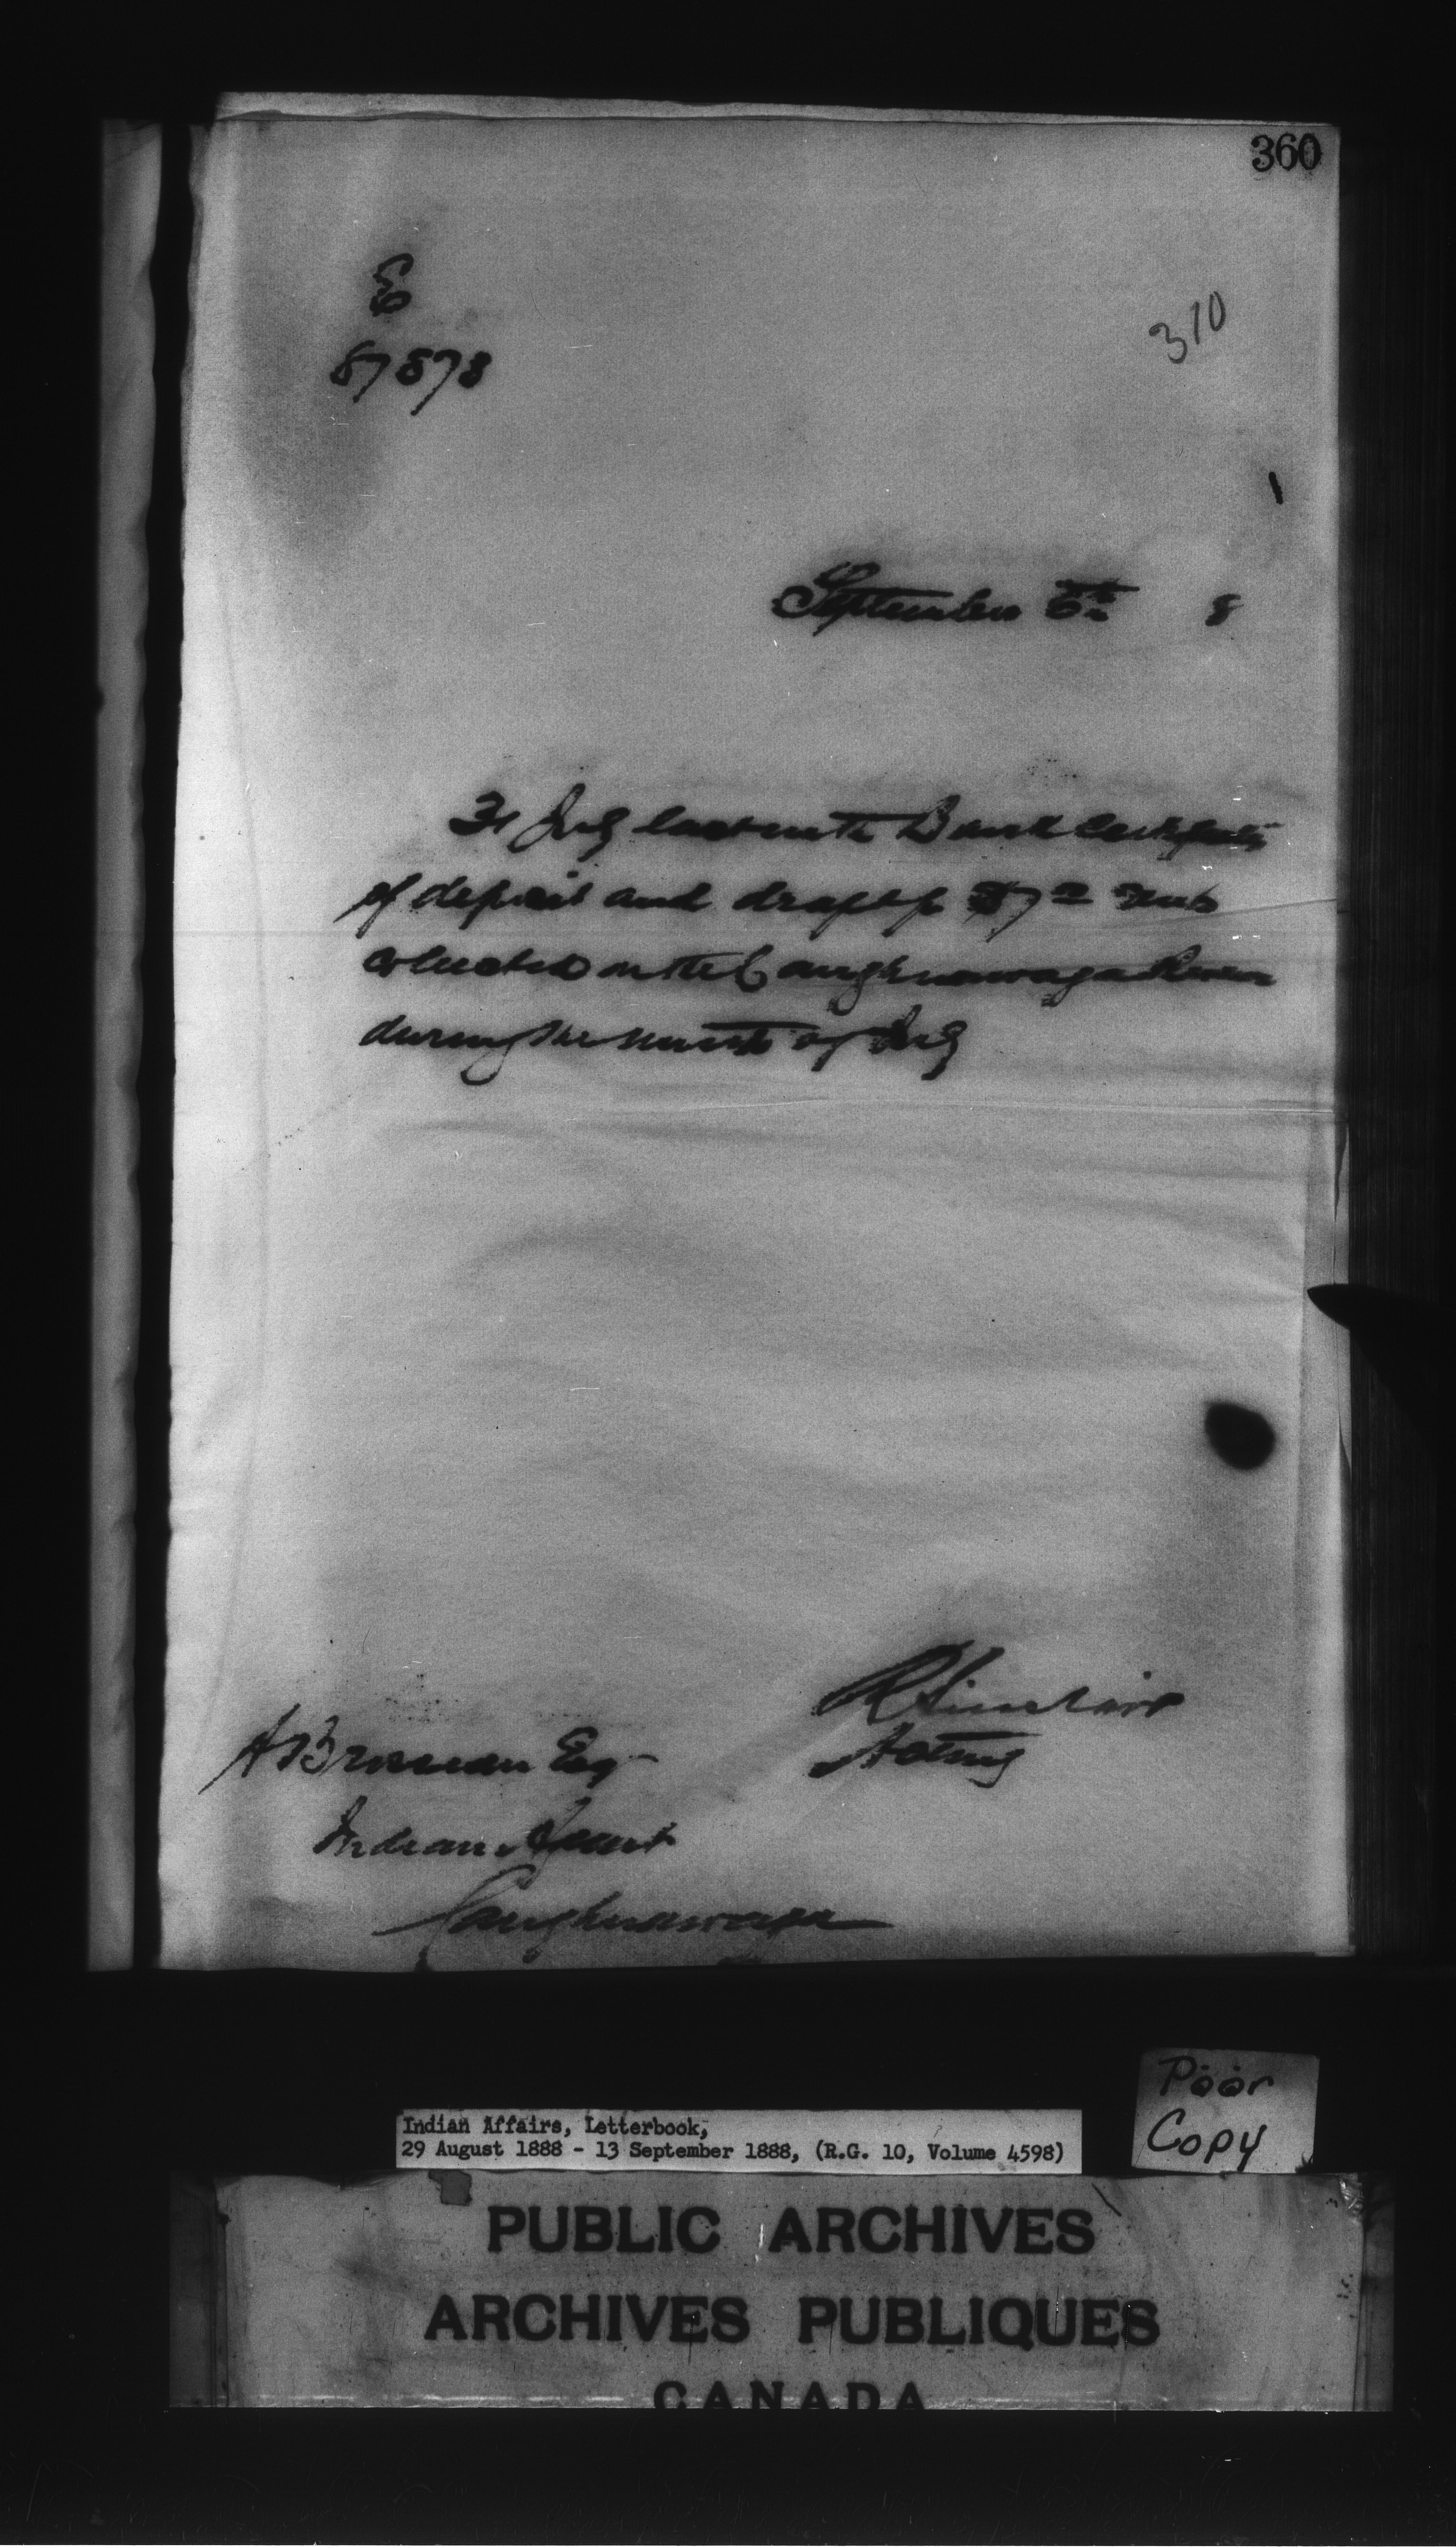 360
E
87878
310
September 5th 8
31 July last with Bank Certificate
of deposit and draft for rents
collected on the Caughnawaga Reserve
during the month of July
R Sinclair
Acting
A Brosseau Esq
Indian Agent
Caughnawaga
Poor
Copy
Indian Affairs, Letterbook,
29 August 1888 - 13 September 1888, (R.G. 10, Volume 4598)
PUBLIC ARCHIVES
ARCHIVES PUBLIQUES
CANADA